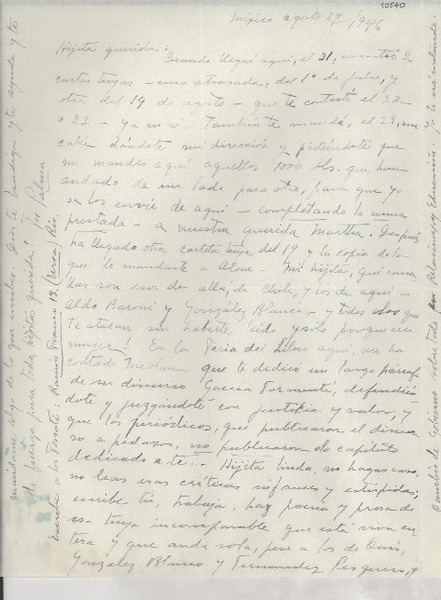 10540
México agosto 27/1946
Hijita querida:
Cuando llegué aquí, el 21, encontré 2
cartas tuyas - una atrasada, del 1º de julio, y
otra del 19 de agosto - que te contesté el 22
o 23 - ya no sé. También te mandé, el 23, un
cable dándote mi dirección y pidiéndote que
me mandes aquí aquellos 1000 que han
andado de un lado para otro, para que yo
se los envíe de aquí - completando la suma
prestada - a nuestra querida Martha. Después
ha llegado otra cartita tuya del 19 y la copia de lo
que le mandaste a Alone. Mi hijita, qué cana
llas son esos de allá, de Chile, y los de aquí -
Aldo Baroni y González Blanco - y todos los que
te atacan sin haberte leído y sólo porque eres
mujer! En la Feria del Libro aquí, me ha
contado que le dedicó un largo párrafo
de su discurso García Formentí, defendién
dote y juzgándote con justicia y valor, y
que los periódicos, que publicaron el discurso
a pedazos, no publicaron el capítulo
dedicado a ti... Hijita linda, no hagas caso.
no leas esas críticas infames y estúpidas;
escribe tú, trabaja, haz poesía y prosa de
esa tuya incomparable que está viva en
tera y que anda sola, pese a los de
González Blanco y Fernández
mándame algo de lo que escribes. Dios te bendiga y te ayude y te
dé fuerza para todo, hijita querida! Tu Palma
Escribe a los Ramón Franco 13 (Urca) Río.